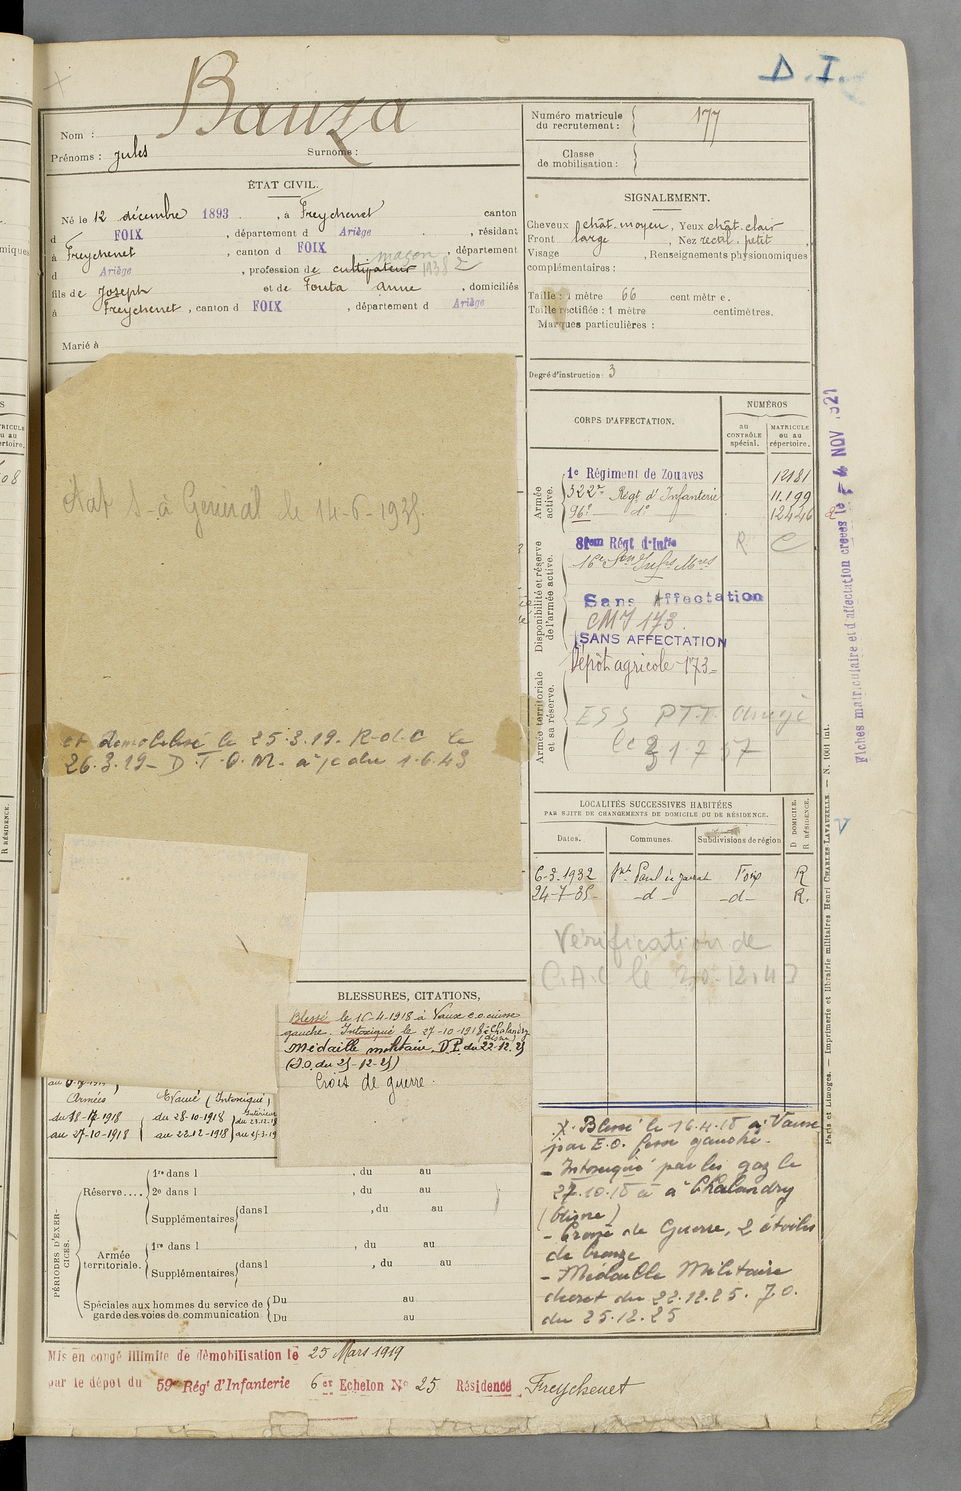 D.I.
Bauza
Nom :
Prénoms : Jules Surnome :
Numéro matricule du recrutement : 177
Classe de mobilisation :
ÉTAT CIVIL.
Né le 12 décembre 1893, à Freychenet canton
d FOIX, département d Ariège, résidant
à Freychenet, canton d FOIX, département
maçon
d Ariège, profession de cultivateur 1938
fils de Joseph et de Fonta Anne, domiciliés
à Freychenet, canton d FOIX, département d Ariège
Marié à
SIGNALEMENT.
Cheveux chât. moyen, Yeux chât. clair
Front large, Nez rectil. petit,
Visage , Renseignements physionomiques
complémentaires :
Taille : 1 mètre 66 centimètre.
Taille rectifiée : 1 mètre centimètres.
Marques particulières :
Degré d'instruction : 3
CORPS D'AFFECTATION.
NUMÉROS
AU CONTRÔLE spécial.
MATRICULE ou au répertoire.
Armée active.
1e Régiment de Zouaves 12181
322e Régt d'Infanterie 11.199
96e d° 12446
Disponibilité et réserve de l'armée active.
81em Régt d'Infie R C
16e Son Infrs Mres
Sans Affectation
CMJ 173
SANS AFFECTATION
Dépôt agricole 173
Armée territoriale et sa réserve.
ESS PTT
le 31 7 57
Fiches matriculaire et d'affectation créées le 4 NOV
État S. à General le 14-6-1935
et démobilisé le 25.3.19. R.d.C le
26.3.19 - D.T.O.M. à/c du 1.6.43
LOCALITÉS SUCCESSIVES HABITÉES
PAR SUITE DE CHANGEMENTS DE DOMICILE OU DE RÉSIDENCE.
Dates. Communes. Subdivisions de région D DOMICILE. R RÉSIDENCE.
6-3-1932 St Paul de Jarrat Foix R
24-7-35 -d- -d- R.
Vérification de
C.A.C le 30-12-42
BLESSURES, CITATIONS,
Blessé le 16-4-1918 à Vaux e.o. cuisse
gauche. Intoxiqué le 27-10-1918 à Chalandry
(Aisne)
Médaille militaire. D.P. du 22-12.25
(J.O. du 25-12-25)
Croix de guerre.
Armées
du 18-17-1918
au 27-10-1918
Evacué (Intoxiqué)
du 28-10-1918
au 22.12-1918
Intérieur
du 23.12.18
au 25-3-19
X. Blessé le 16.4.18 à Vaux
par E.O. fesse gauche.
- Intoxiqué par les gaz le
27.10.18 à Chalandry
(Aisne)
- Croix de Guerre, 2 étoiles
de bronze
- Médaille Militaire
décret du 22.12.25. J.O.
du 25.12.25
PÉRIODES D'EXERCICES.
Réserve....
1re dans l , du au
2e dans l , du au
Supplémentaires dans l , du au
Armée territoriale.
1re dans l , du au
Supplémentaires dans l , du au
Spéciales aux hommes du service de garde des voies de communication
Du au
Du au
Mis en congé illimité de démobilisation le 25 Mars 1919
par le dépôt du 59e Régt d'Infanterie 6er Echelon No 25 Résidence Freychenet
Paris et Limoges. — Imprimerie et librairie militaires Henri CHARLES-LAVAUZELLE. — N. 1001 int.